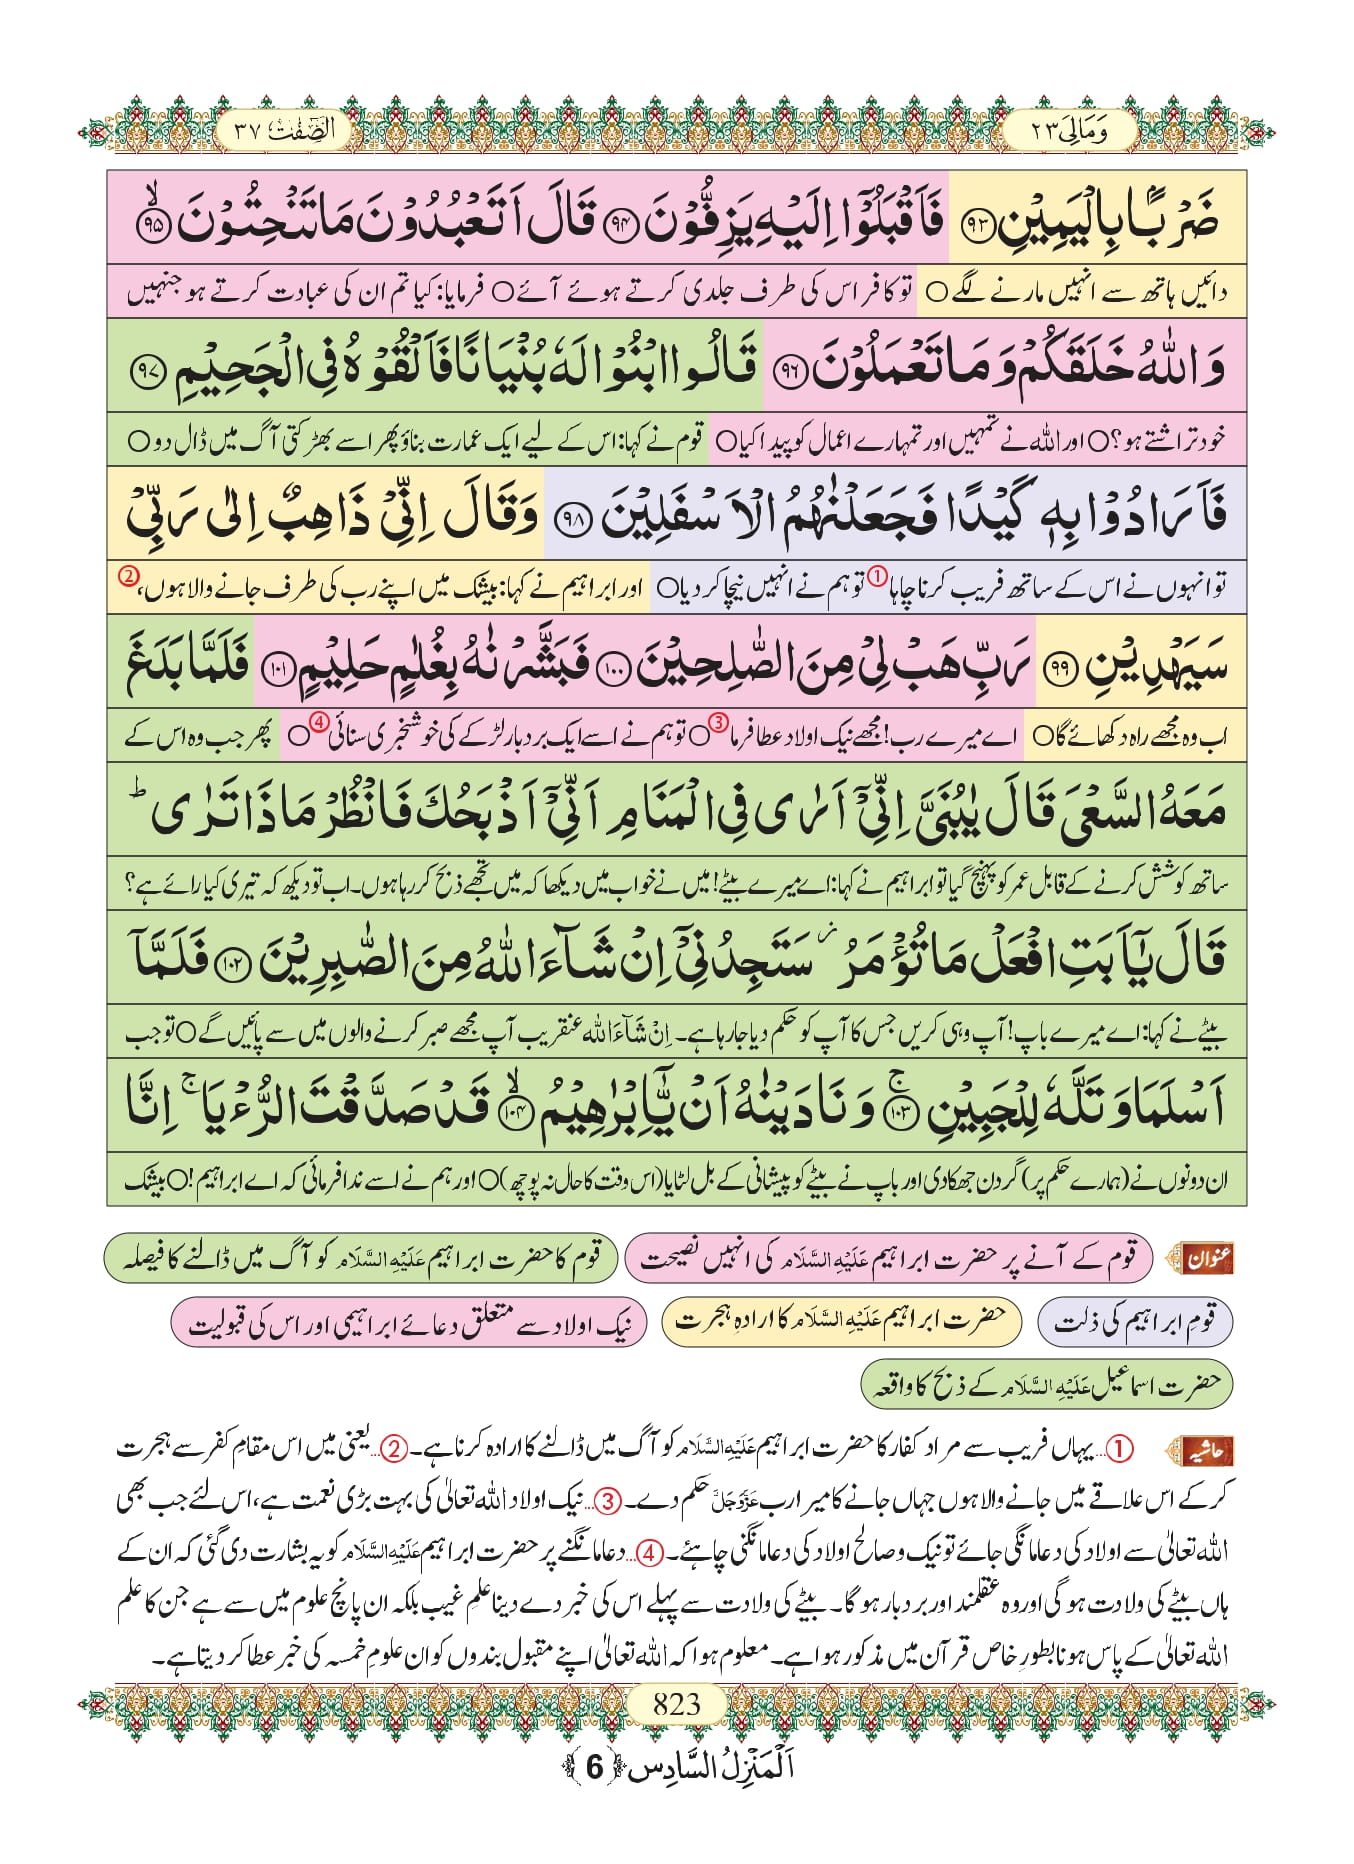 وَمَالِیَ ۲۳
الصّٰٓفّٰت ۳۷
ضَرْبًۢا بِالْیَمِیْنِ ﴿۹۳﴾ فَاَقْبَلُوْۤا اِلَیْهِ یَزِفُّوْنَ ﴿۹۴﴾ قَالَ اَتَعْبُدُوْنَ مَا تَنْحِتُوْنَ ﴿ۙ۹۵﴾
دائیں ہاتھ سے انہیں مارنے لگے○ تو کافر اس کی طرف جلدی کرتے ہوئے آئے○ فرمایا: کیا تم ان کی عبادت کرتے ہو جنہیں
وَاللّٰهُ خَلَقَكُمْ وَمَا تَعْمَلُوْنَ ﴿۹۶﴾ قَالُوا ابْنُوْا لَهٗ بُنْیَانًا فَاَلْقُوْهُ فِی الْجَحِیْمِ ﴿۹۷﴾
خود تراشتے ہو؟○ اور اللہ نے تمہیں اور تمہارے اعمال کو پیدا کیا○ قوم نے کہا: اس کے لیے ایک عمارت بناؤ پھر اسے بھڑکتی آگ میں ڈال دو○
فَاَرَادُوْا بِهٖ كَیْدًا فَجَعَلْنٰهُمُ الْاَسْفَلِیْنَ ﴿۹۸﴾ وَقَالَ اِنِّیْ ذَاهِبٌ اِلٰی رَبِّیْ
تو انہوں نے اس کے ساتھ فریب کرنا چاہا① تو ہم نے انہیں نیچا کر دیا○ اور ابراہیم نے کہا: بیشک میں اپنے رب کی طرف جانے والا ہوں،②
سَیَهْدِیْنِ ﴿۹۹﴾ رَبِّ هَبْ لِیْ مِنَ الصّٰلِحِیْنَ ﴿۱۰۰﴾ فَبَشَّرْنٰهُ بِغُلٰمٍ حَلِیْمٍ ﴿۱۰۱﴾ فَلَمَّا بَلَغَ
اب وہ مجھے راہ دکھائے گا○ اے میرے رب! مجھے نیک اولاد عطا فرما③○ تو ہم نے اسے ایک بردبار لڑکے کی خوشخبری سنائی④○ پھر جب وہ اس کے
مَعَهُ السَّعْیَ قَالَ یٰبُنَیَّ اِنِّیْۤ اَرٰی فِی الْمَنَامِ اَنِّیْۤ اَذْبَحُكَ فَانْظُرْ مَا ذَا تَرٰی ؕ
ساتھ کوشش کرنے کے قابل عمر کو پہنچ گیا تو ابراہیم نے کہا: اے میرے بیٹے! میں نے خواب میں دیکھا کہ میں تجھے ذبح کر رہا ہوں۔ اب تو دیکھ کہ تیری کیا رائے ہے؟
قَالَ یٰۤاَبَتِ افْعَلْ مَا تُؤْمَرُ ؗ سَتَجِدُنِیْۤ اِنْ شَآءَ اللّٰهُ مِنَ الصّٰبِرِیْنَ ﴿۱۰۲﴾ فَلَمَّاۤ
بیٹے نے کہا: اے میرے باپ! آپ وہی کریں جس کا آپ کو حکم دیا جا رہا ہے۔ اِنْ شَآءَ اللہ عنقریب آپ مجھے صبر کرنے والوں میں سے پائیں گے○ تو جب
اَسْلَمَا وَتَلَّهٗ لِلْجَبِیْنِ ﴿ۚ۱۰۳﴾ وَنَادَیْنٰهُ اَنْ یّٰۤاِبْرٰهِیْمُ ﴿ۙ۱۰۴﴾ قَدْ صَدَّقْتَ الرُّءْیَا ۚ اِنَّا
ان دونوں نے (ہمارے حکم پر) گردن جھکا دی اور باپ نے بیٹے کو پیشانی کے بل لٹایا (اس وقت کا حال نہ پوچھ)○ اور ہم نے اسے ندا فرمائی کہ اے ابراہیم!○ بیشک
عنوان قوم کے آنے پر حضرت ابراہیم عَلَیْهِ السَّلَام کی انہیں نصیحت قوم کا حضرت ابراہیم عَلَیْهِ السَّلَام کو آگ میں ڈالنے کا فیصلہ
قومِ ابراہیم کی ذلت حضرت ابراہیم عَلَیْهِ السَّلَام کا ارادہِ ہجرت نیک اولاد سے متعلق دعائے ابراہیمی اور اس کی قبولیت
حضرت اسماعیل عَلَیْهِ السَّلَام کے ذبح کا واقعہ
حاشیہ ①...یہاں فریب سے مراد کفار کا حضرت ابراہیم عَلَیْهِ السَّلَام کو آگ میں ڈالنے کا ارادہ کرنا ہے۔ ②...یعنی میں اس مقامِ کفر سے ہجرت
کرکے اس علاقے میں جانے والا ہوں جہاں جانے کا میرا رب عَزَّوَجَلَّ حکم دے۔ ③...نیک اولاد اللہ تعالیٰ کی بہت بڑی نعمت ہے، اس لئے جب بھی
اللہ تعالیٰ سے اولاد کی دعا مانگی جائے تو نیک و صالح اولاد کی دعا مانگنی چاہئے۔ ④...دعا مانگنے پر حضرت ابراہیم عَلَیْهِ السَّلَام کو یہ بشارت دی گئی کہ ان کے
ہاں بیٹے کی ولادت ہوگی اور وہ عقلمند اور بردبار ہوگا۔ بیٹے کی ولادت سے پہلے اس کی خبر دے دینا علمِ غیب بلکہ ان پانچ علوم میں سے ہے جن کا علم
اللہ تعالیٰ کے پاس ہونا بطورِ خاص قرآن میں مذکور ہوا ہے۔ معلوم ہوا کہ اللہ تعالیٰ اپنے مقبول بندوں کو ان علومِ خمسہ کی خبر عطا کر دیتا ہے۔
823
اَلْمَنْزِلُ السَّادِس ﴿6﴾